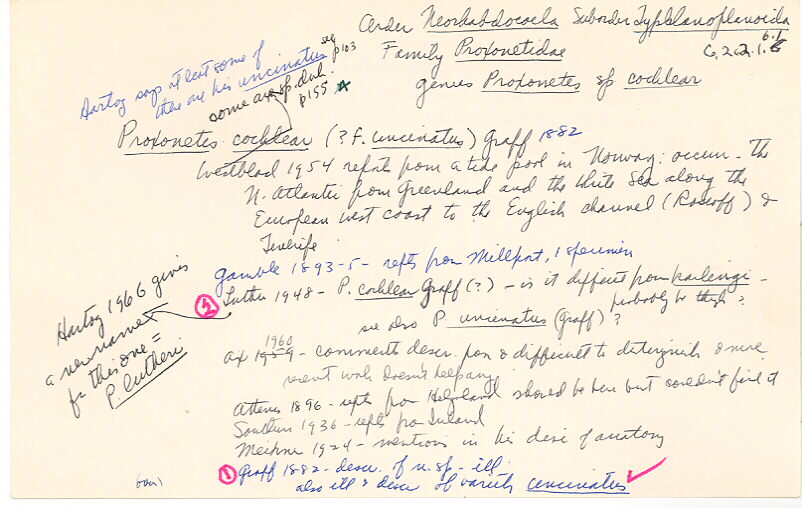 Order Neorhabdocoela Suborder Typhloplanoida
Family Proxonetidae
6.2.2.1.6
6.1
genus Proxonetes sp. cochlear
Hartog says at least some of
these are his uncinatus see p103
some are sp. dub.
p155
Proxonetes cochlear (? f. uncinatus) Graff 1882
Westblad 1954 repts from a tide pool in Norway: occurr - the
N. Atlantic from Greenland and the White Sea along the
European west coast to the English channel (Roscoff) &
Tenerife
Gamble 1893-5 - repts from Millport, 1 specimen
② Luther 1948 - P. cochlear Graff (?) - is it different from karlingi -
probably be though?
see also P. uncinatus (Graff)?
Hartog 1966 gives
a new name
for this one =
P. lutheri
1960
Ax 1959 - comments descr. poor & difficult to distinguish & more
recent work doesn't help any
Attems 1896 - repts from Helgoland should be here but couldn't find it
Southern 1936 - repts from Ireland
Meixner 1924 - mentions in his disc of anatomy
① Graff 1882 - descr. of n. sp. - ill.
also ill & descr of variety uncinatus ✓